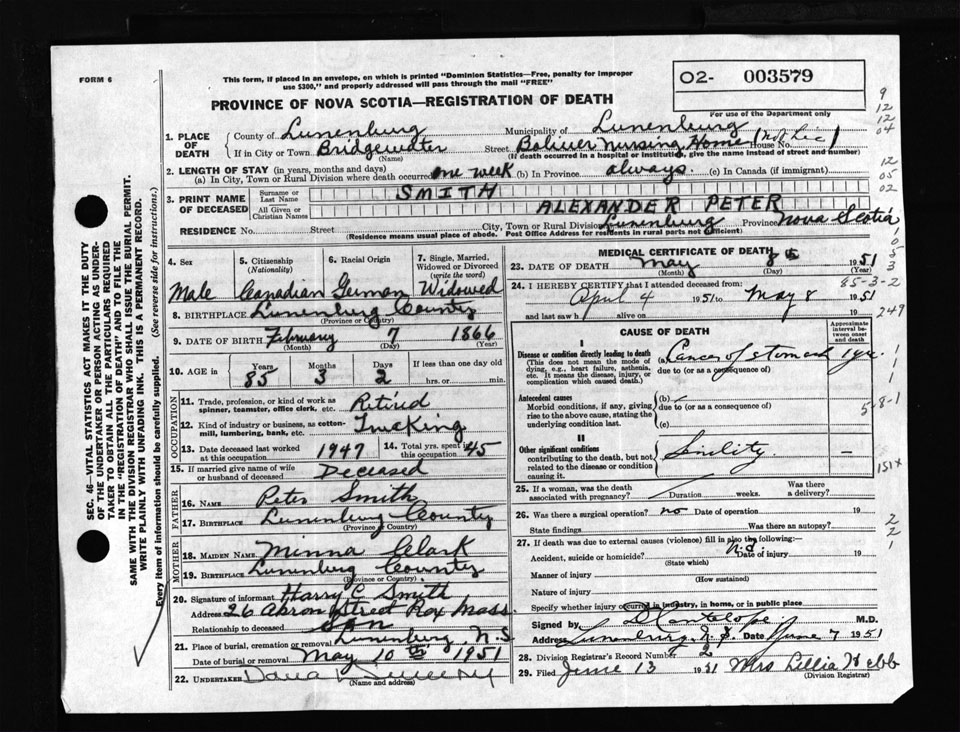 FORM 6
This form, if placed in an envelope, on which is printed "Dominion Statistics—Free, penalty for improper
use $300," and properly addressed will pass through the mail "FREE"
O2- 003579
For use of the Department only
PROVINCE OF NOVA SCOTIA—REGISTRATION OF DEATH
1. PLACE OF DEATH
County of Lunenburg Municipality of Lunenburg
If in City or Town Bridgewater Street Boliver Nursing Home House No.
(Name) (If death occurred in a hospital or institution, give the name instead of street and number)
2. LENGTH OF STAY (in years, months and days)
(a) In City, Town or Rural Division where death occurred one week (b) In Province always. (c) In Canada (if immigrant)
3. PRINT NAME OF DECEASED
Surname or Last Name SMITH
All Given or Christian Names ALEXANDER PETER
RESIDENCE No. Street City, Town or Rural Division Lunenburg Province Nova Scotia
(Residence means usual place of abode. Post Office Address for residents in rural parts not sufficient)
4. Sex
Male
5. Citizenship
(Nationality)
Canadian
6. Racial Origin
German
7. Single, Married, Widowed or Divorced
(write the word)
Widowed
8. BIRTHPLACE Lunenburg County
(Province or Country)
9. DATE OF BIRTH February 7 1866
(Month) (Day) (Year)
10. AGE in Years Months Days If less than one day
85 3 2 hrs. or min.
OCCUPATION
11. Trade, profession, or kind of work as spinner, teamster, office clerk, etc. Retired
12. Kind of industry or business, as cotton-mill, lumbering, bank, etc. Trucking
13. Date deceased last worked at this occupation 1947
14. Total yrs. spent in this occupation 45
15. If married give name of wife or husband of deceased Deceased
FATHER
16. NAME Peter Smith
17. BIRTHPLACE Lunenburg County
(Province or Country)
MOTHER
18. MAIDEN NAME Minna Clark
19. BIRTHPLACE Lunenburg County
(Province or Country)
20. Signature of informant Harry C. Smith
Address 26 Street Rox Mass.
Relationship to deceased Son
21. Place of burial, cremation or removal Lunenburg, N.S.
Date of burial or removal May 10th 1951
22. UNDERTAKER Dana Sweeny
(Name and address)
MEDICAL CERTIFICATE OF DEATH
23. DATE OF DEATH May 8th 1951
(Month) (Day) (Year)
24. I HEREBY CERTIFY that I attended deceased from:
April 4 1951 to May 8 1951
and last saw h alive on 19
CAUSE OF DEATH
Approximate interval between onset and death
I
Disease or condition directly leading to death
(This does not mean the mode of dying, e.g., heart failure, asthenia, etc. It means the disease, injury, or complication which caused death.)
(a) Cancer of stomach 1 yr.
due to (or as a consequence of)
Antecedent causes
Morbid conditions, if any, giving rise to the above cause, stating the underlying condition last.
(b)
due to (or as a consequence of)
(c)
II
Other significant conditions
contributing to the death, but not related to the disease or condition causing it.
Senility.
25. If a woman, was the death associated with pregnancy? Duration weeks. Was there a delivery?
26. Was there a surgical operation? no Date of operation 19
State findings Was there an autopsy?
27. If death was due to external causes (violence) fill in also the following:—
Accident, suicide or homicide? Date of injury 19
(State which)
Manner of injury
(How sustained)
Nature of injury
Specify whether injury occurred in industry, in home, or in public place
Signed by M.D.
Address Lunenburg, N.S. Date June 7 1951
28. Division Registrar's Record Number 2
29. Filed June 13 1951 Mrs Lillia Webb
(Division Registrar)
SEC. 46—VITAL STATISTICS ACT MAKES IT THE DUTY
OF THE UNDERTAKER OR PERSON ACTING AS UNDER-
TAKER TO OBTAIN ALL THE PARTICULARS REQUIRED
IN THE "REGISTRATION OF DEATH" AND TO FILE THE
SAME WITH THE DIVISION REGISTRAR WHO SHALL ISSUE THE BURIAL PERMIT.
WRITE PLAINLY WITH UNFADING INK. THIS IS A PERMANENT RECORD.
Every item of information should be carefully supplied. (See reverse side for instructions.)
9
12
12
04
12
05
02
1
0
5
3
85-3-2
249
1
1
1
5-8-1
151x
2
2
1